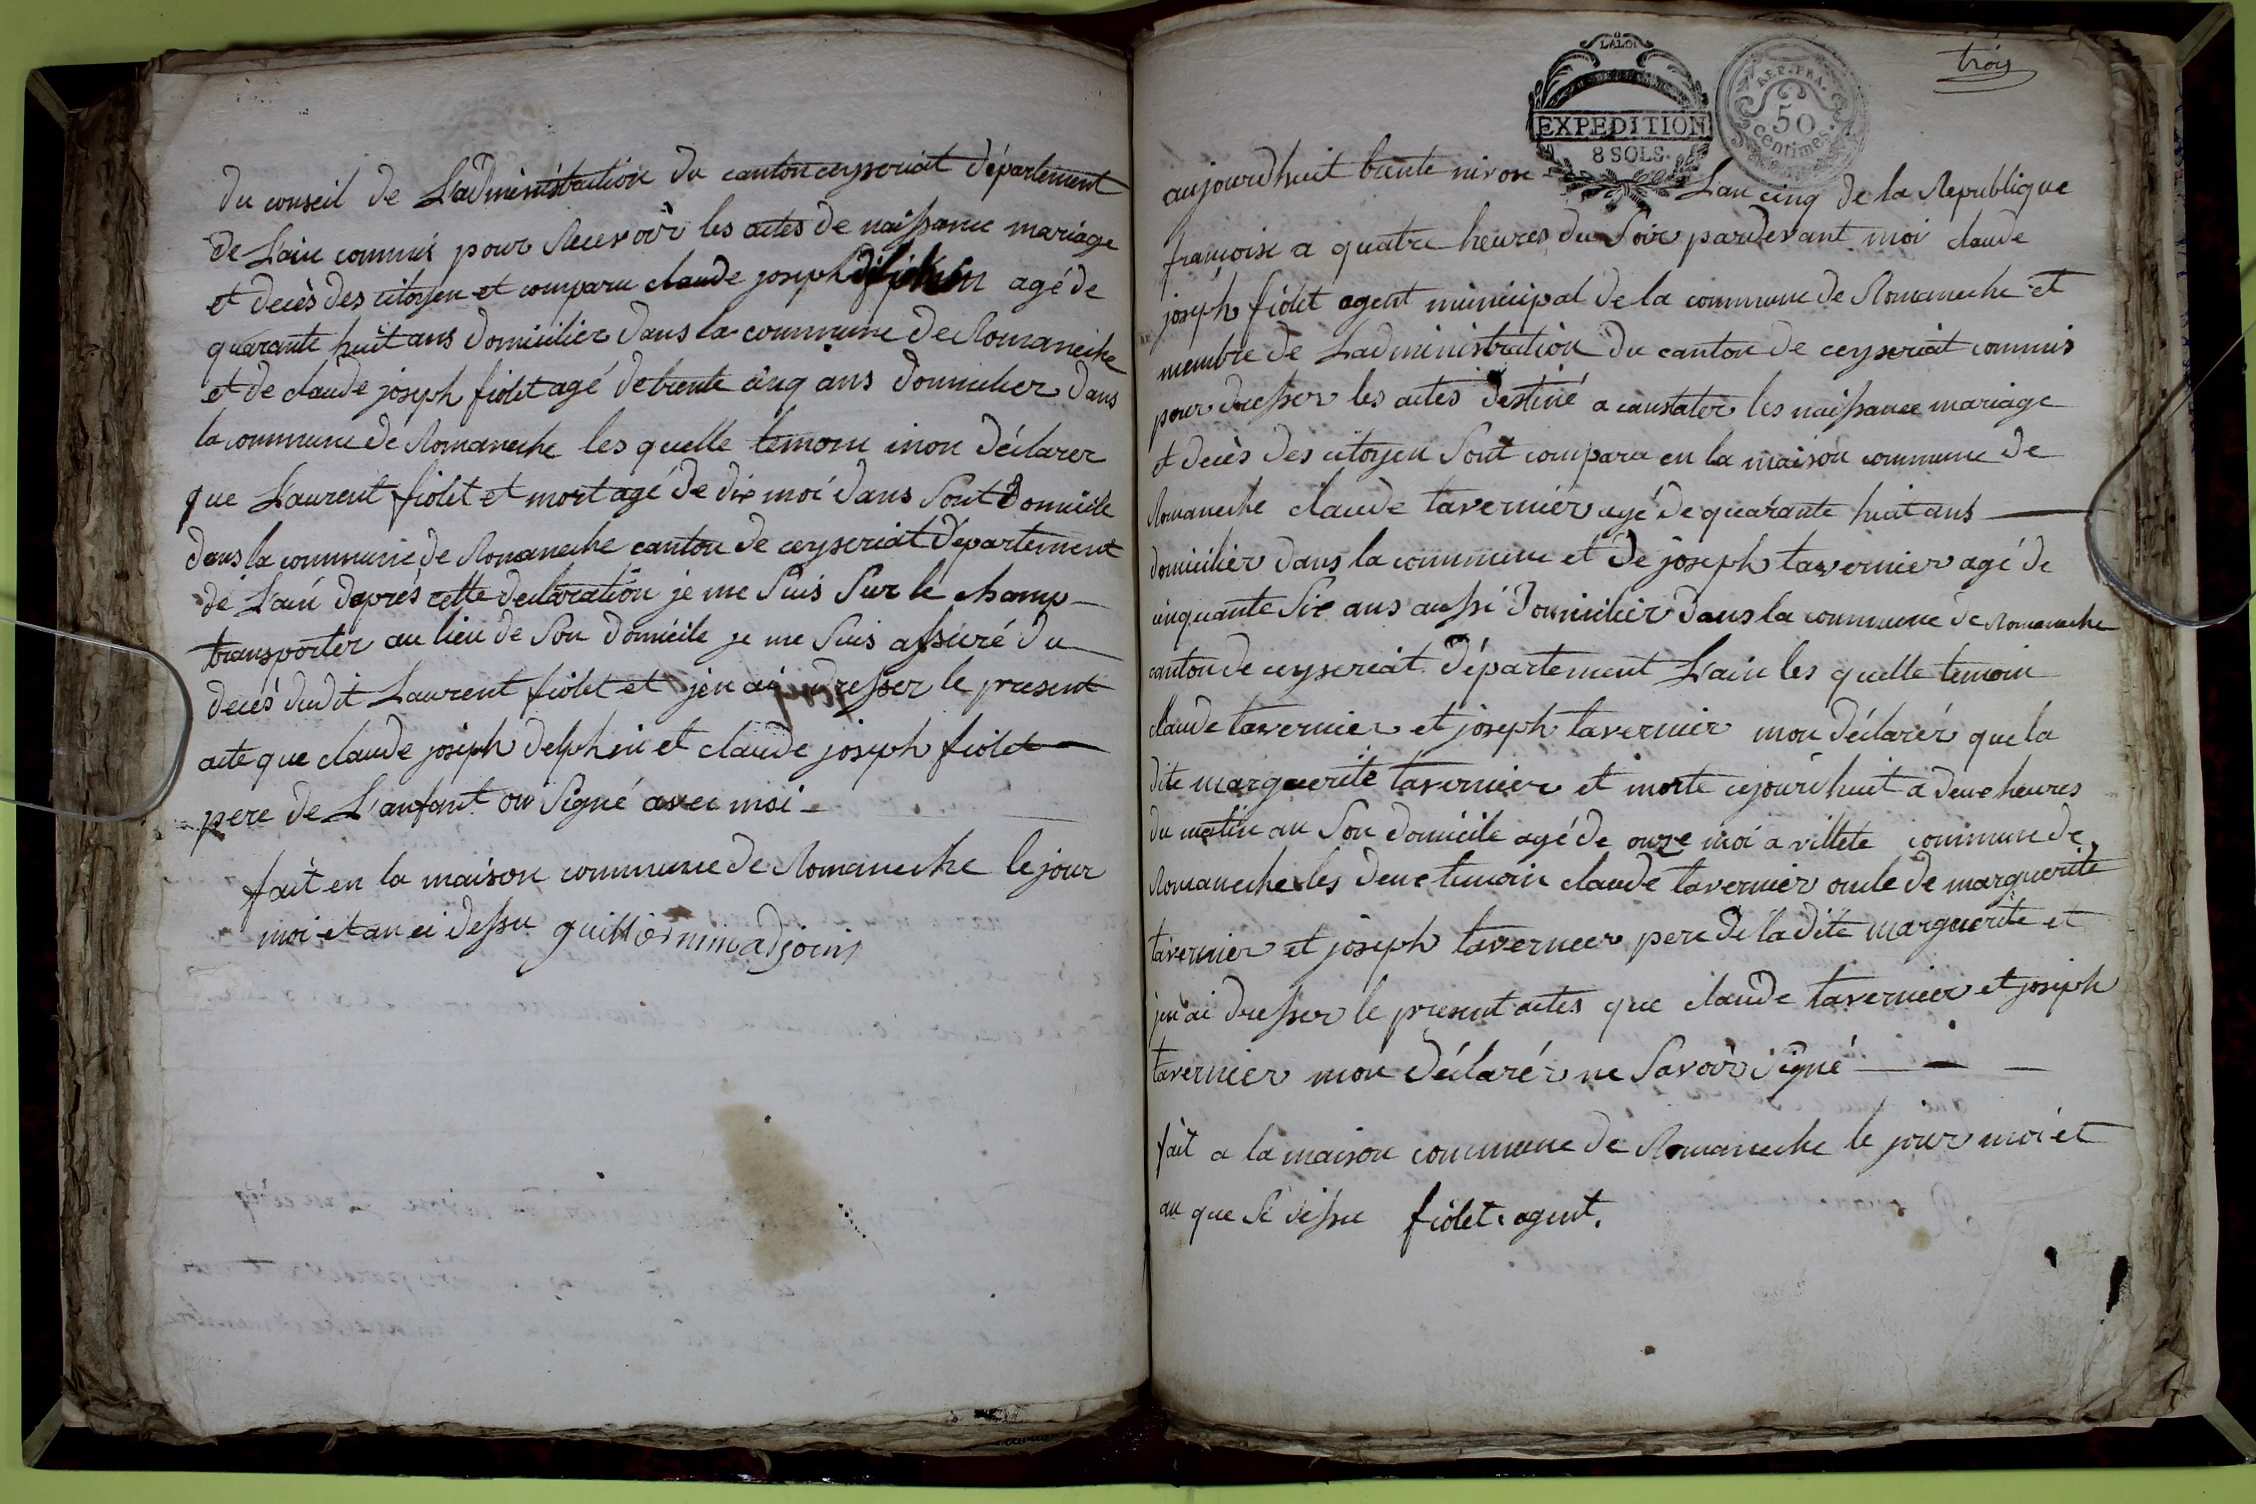 du conseil de Ladministration du canton ceyseriat département
de Lain commis pour Recevoir les actes de naissance mariage
et decès des citoyen et comparu claude joseph delphin agé de
quarante huit ans domicilier dans la commune de Romaneche
et de claude joseph fiolet agé de trente cinq ans domicilier dans
la commune de Romaneche les quelle temoin mon déclarer
que Laurent fiolet et mort agé de dix moi dans Sont domicile
dans la commune de Romaneche canton de ceyseriat département
de Lain daprès cette declaration je me Suis Sur le champ
transporter au lieu de Son domicile je me Suis assuré du
decès dudit Laurent fiolet et jen ai dresser le present
acte que claude joseph delphin et claude joseph fiolet
pere de L'anfant on Signé avec moi
fait en la maison commune de Romaneche le jour
moi et an ci dessu guillermin adjoint
trois
LALOI
EXPEDITION
8 SOLS.
REP. FRA.
50
centimes.
aujourdhuit trente nivose Lan cinq de la Republique
françoise a quatre heures du Soir pardevant moi claude
joseph fiolet agent municipal de la commune de Romaneche et
membre de Ladministration du canton de ceyseriat commis
pour dresser les actes destiné a constater les naissance mariage
et decès des citoyen Sont comparu en la maison commune de
Romaneche claude tavernier agé de quarante huit ans
domicilier dans la commune et de joseph tavernier agé de
cinquante Six ans aussi domicilier dans la commune de Romaneche
canton de ceyseriat département Lain les quelle temoin
claude tavernier et joseph tavernier mon déclarér que la
dite marguerite tavernier et morte cejourdhuit a deux heures
du matin au Son domicile agé de onze moi a villete commune de
Romaneche les deux temoin claude tavernier oncle de marguerite
tavernier et joseph tavernier pere de ladite marguerite et
jen ai dresser le present actes que claude tavernier et joseph
tavernier mon déclarér ne Savoir Signé
fait a la maison commune de Romaneche le jour moi et
an que Si dessu fiolet agent.